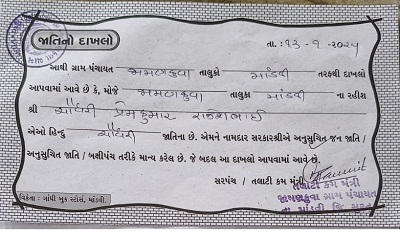 જાતિનો દાખલો
તા. : ૧૩ - ૧ - ૨૦૨૫
આથી ગ્રામ પંચાયત જામણકુવા તાલુકો માંડવી તરફથી દાખલો
આપવામાં આવે છે કે, મોજે જામણકુવા તાલુકો માંડવી ના રહીશ
શ્રી ચૌધરી પ્રેમકુમાર રાજેશભાઈ
એઓ હિન્દુ ચૌધરી જાતિના છે. એમને નામદાર સરકારશ્રીએ અનુસુચિત જન જાતિ /
અનુસુચિત જાતિ / બક્ષીપંચ તરીકે માન્ય કરેલ છે. જે બદલ આ દાખલો આપવામાં આવે છે.
સરપંચ / તલાટી કમ મંત્રી
તલાટી કમ મંત્રી
જામણકુવા ગ્રામ પંચાયત
તા. માંડવી જિ. સુરત
વિક્રેતા : ગાંધી બુક સ્ટોર્સ, માંડવી.